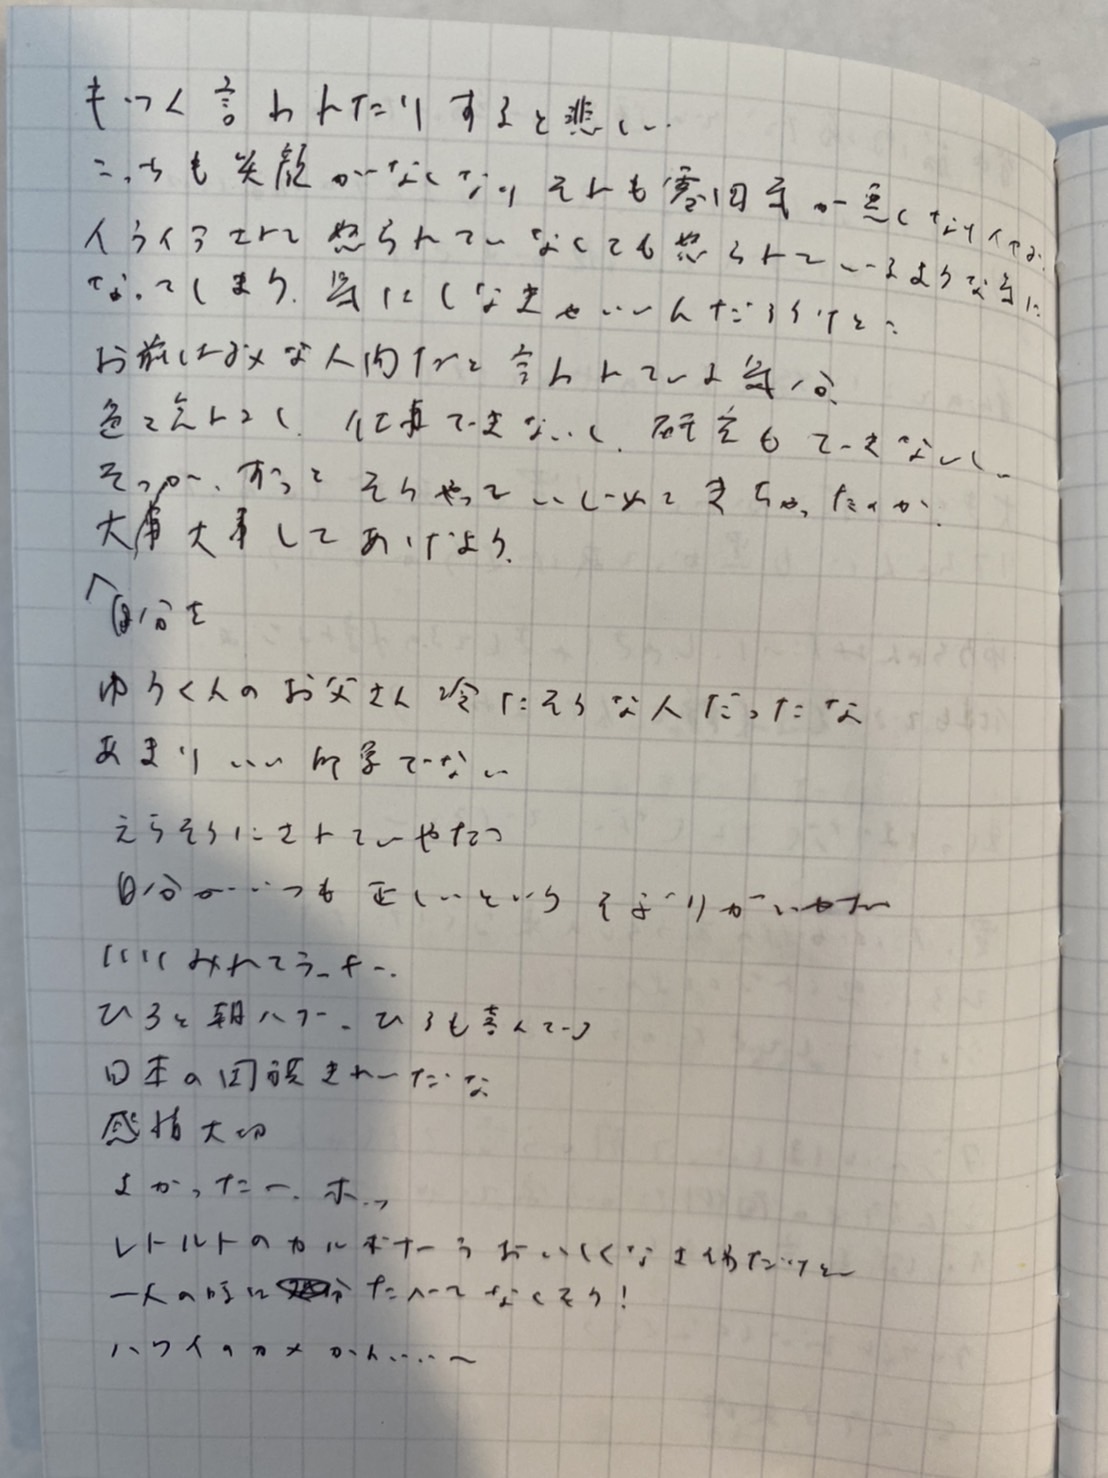 きつく言われたりすると悲しい.
こっちも笑顔がなくなりそれも雰囲気が悪くなり
イライラされて怒られていなくても怒られているような気に
なってしまう. 気にしなきゃいいんだろうけど
お前はダメな人間だと言われている気分.
仕事できないし. 研究もできないし、
そっか、ずっとそうやっていじめてきちゃったのか.
大事大事してあげよう.
自分を
ゆうくんのお父さん冷たそうな人だったな
あまりいい
えらそうにされていやだ
自分がいつも正しいというそぶりがいやだ
みれてラッキー.
ひろと朝ハワー. ひろも喜んでる
日本の国旗きれーだな
感情大切
よかったー. ホッ
レトルトのカルボナーラおいしくなさそうだけど
一人の時に たべてなくそう!
ハワイのカメかわいい〜